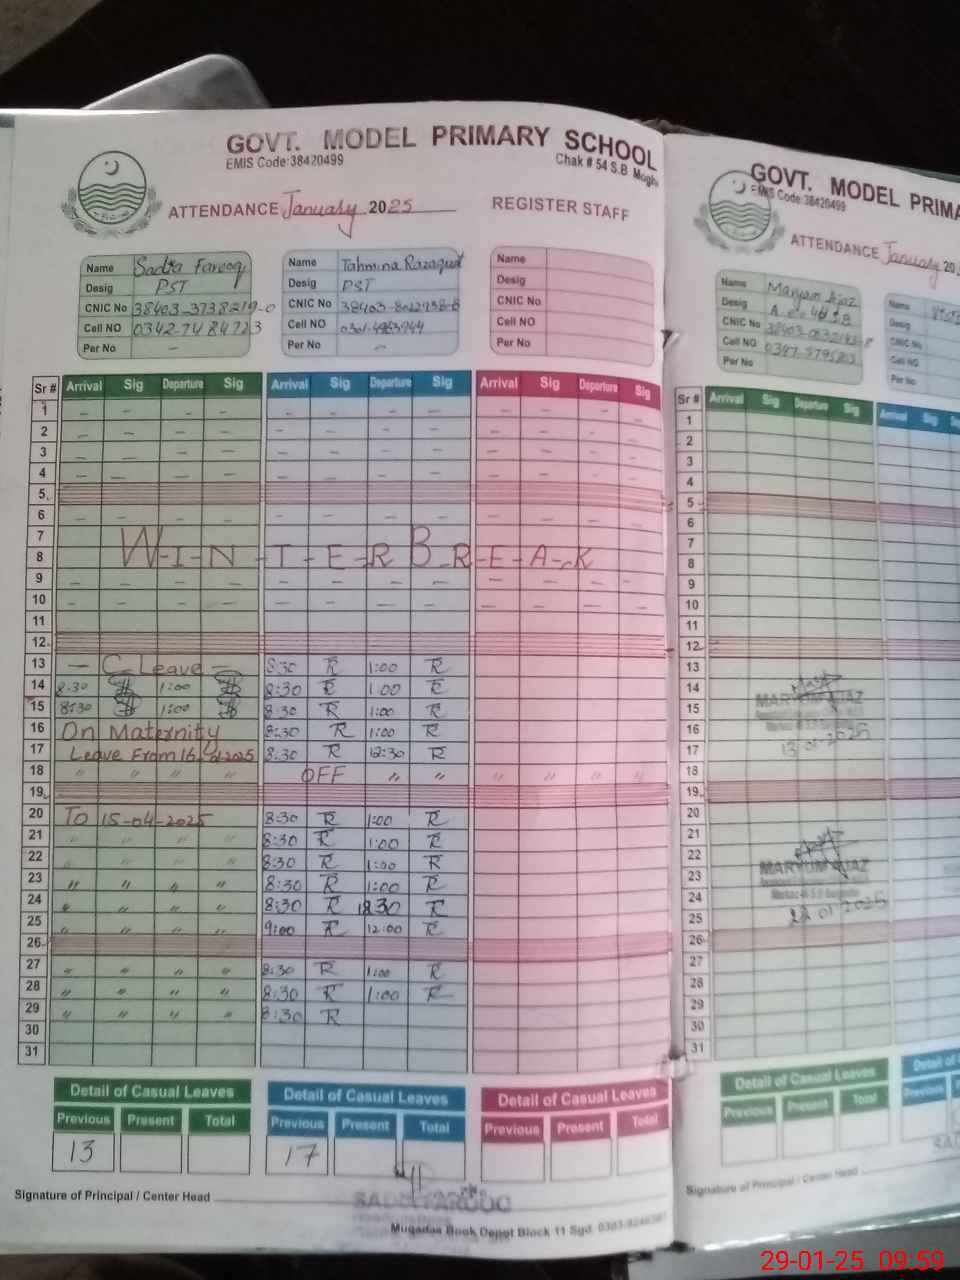 GOVT. MODEL PRIMARY SCHOOL
EMIS Code:38420499
Chak # 54 S.B
ATTENDANCE January 2025 REGISTER STAFF
Name Sadia Farooq
Desig PST
CNIC No 38403-3738219-0
Cell NO 0342-7484723
Per No –
Name Tahmina
Desig PST
CNIC No
Cell NO
Per No –
Name
Desig
CNIC No
Cell NO
Per No
Sr # Arrival Sig Departure Sig Arrival Sig Departure Sig Arrival Sig Departure Sig
1 – – – – – – – – – – – –
2 – – – – – – – – – – – –
3 – – – – – – – – – – – –
4 – – – – – – – – – – – –
5
6 – – – – – – – – – – – –
7
8 W-I-N-T-E-R B-R-E-A-K
9 – – – – – – – – – – – –
10 – – – – – – – – – – – –
11
12
13 – C-Leave – 8:30 R 1:00 R
14 8:30 1:00 8:30 R 1:00 R
15 8:30 1:00 8:30 R 1:00 R
16 On Maternity 8:30 R 1:00 R
17 Leave From 16 2025 8:30 R 12:30 R
18 " " " " OFF " " " " " "
19
20 To 15-04-2025 8:30 R 1:00 R
21 " " " " 8:30 R 1:00 R
22 " " " " 8:30 R 1:00 R
23 " " " " 8:30 R 1:00 R
24 " " " " 8:30 R 12:30 R
25 " " " " 9:00 R 12:00 R
26
27 " " " " 8:30 R 1:00 R
28 " " " " 8:30 R 1:00 R
29 " " " " 8:30 R
30
31
Detail of Casual Leaves
Previous Present Total
13
Detail of Casual Leaves
Previous Present Total
17
Detail of Casual Leaves
Previous Present Total
Signature of Principal / Center Head
Muqadas Book Depot Block 11 Sgd.
GOVT. MODEL
EMIS Code: 38420499
ATTENDANCE January
Name Maryam Ajaz
Desig
CNIC No
Cell NO
Per No
Name
Desig
CNIC No
Cell No
Per No
Sr # Arrival Sig Departure Sig Arrival Sig
1
2
3
4
5
6
7
8
9
10
11
12
13
14
15 MARYUM AJAZ
16
17 13 01 2025
18
19
20
21
22
23 MARYUM AJAZ
24
25 01 2025
26
27
28
29
30
31
Detail of Casual Leaves
Previous Present Total
Detail of
Previous
Signature of Principal / Center Head
29-01-25 09:59